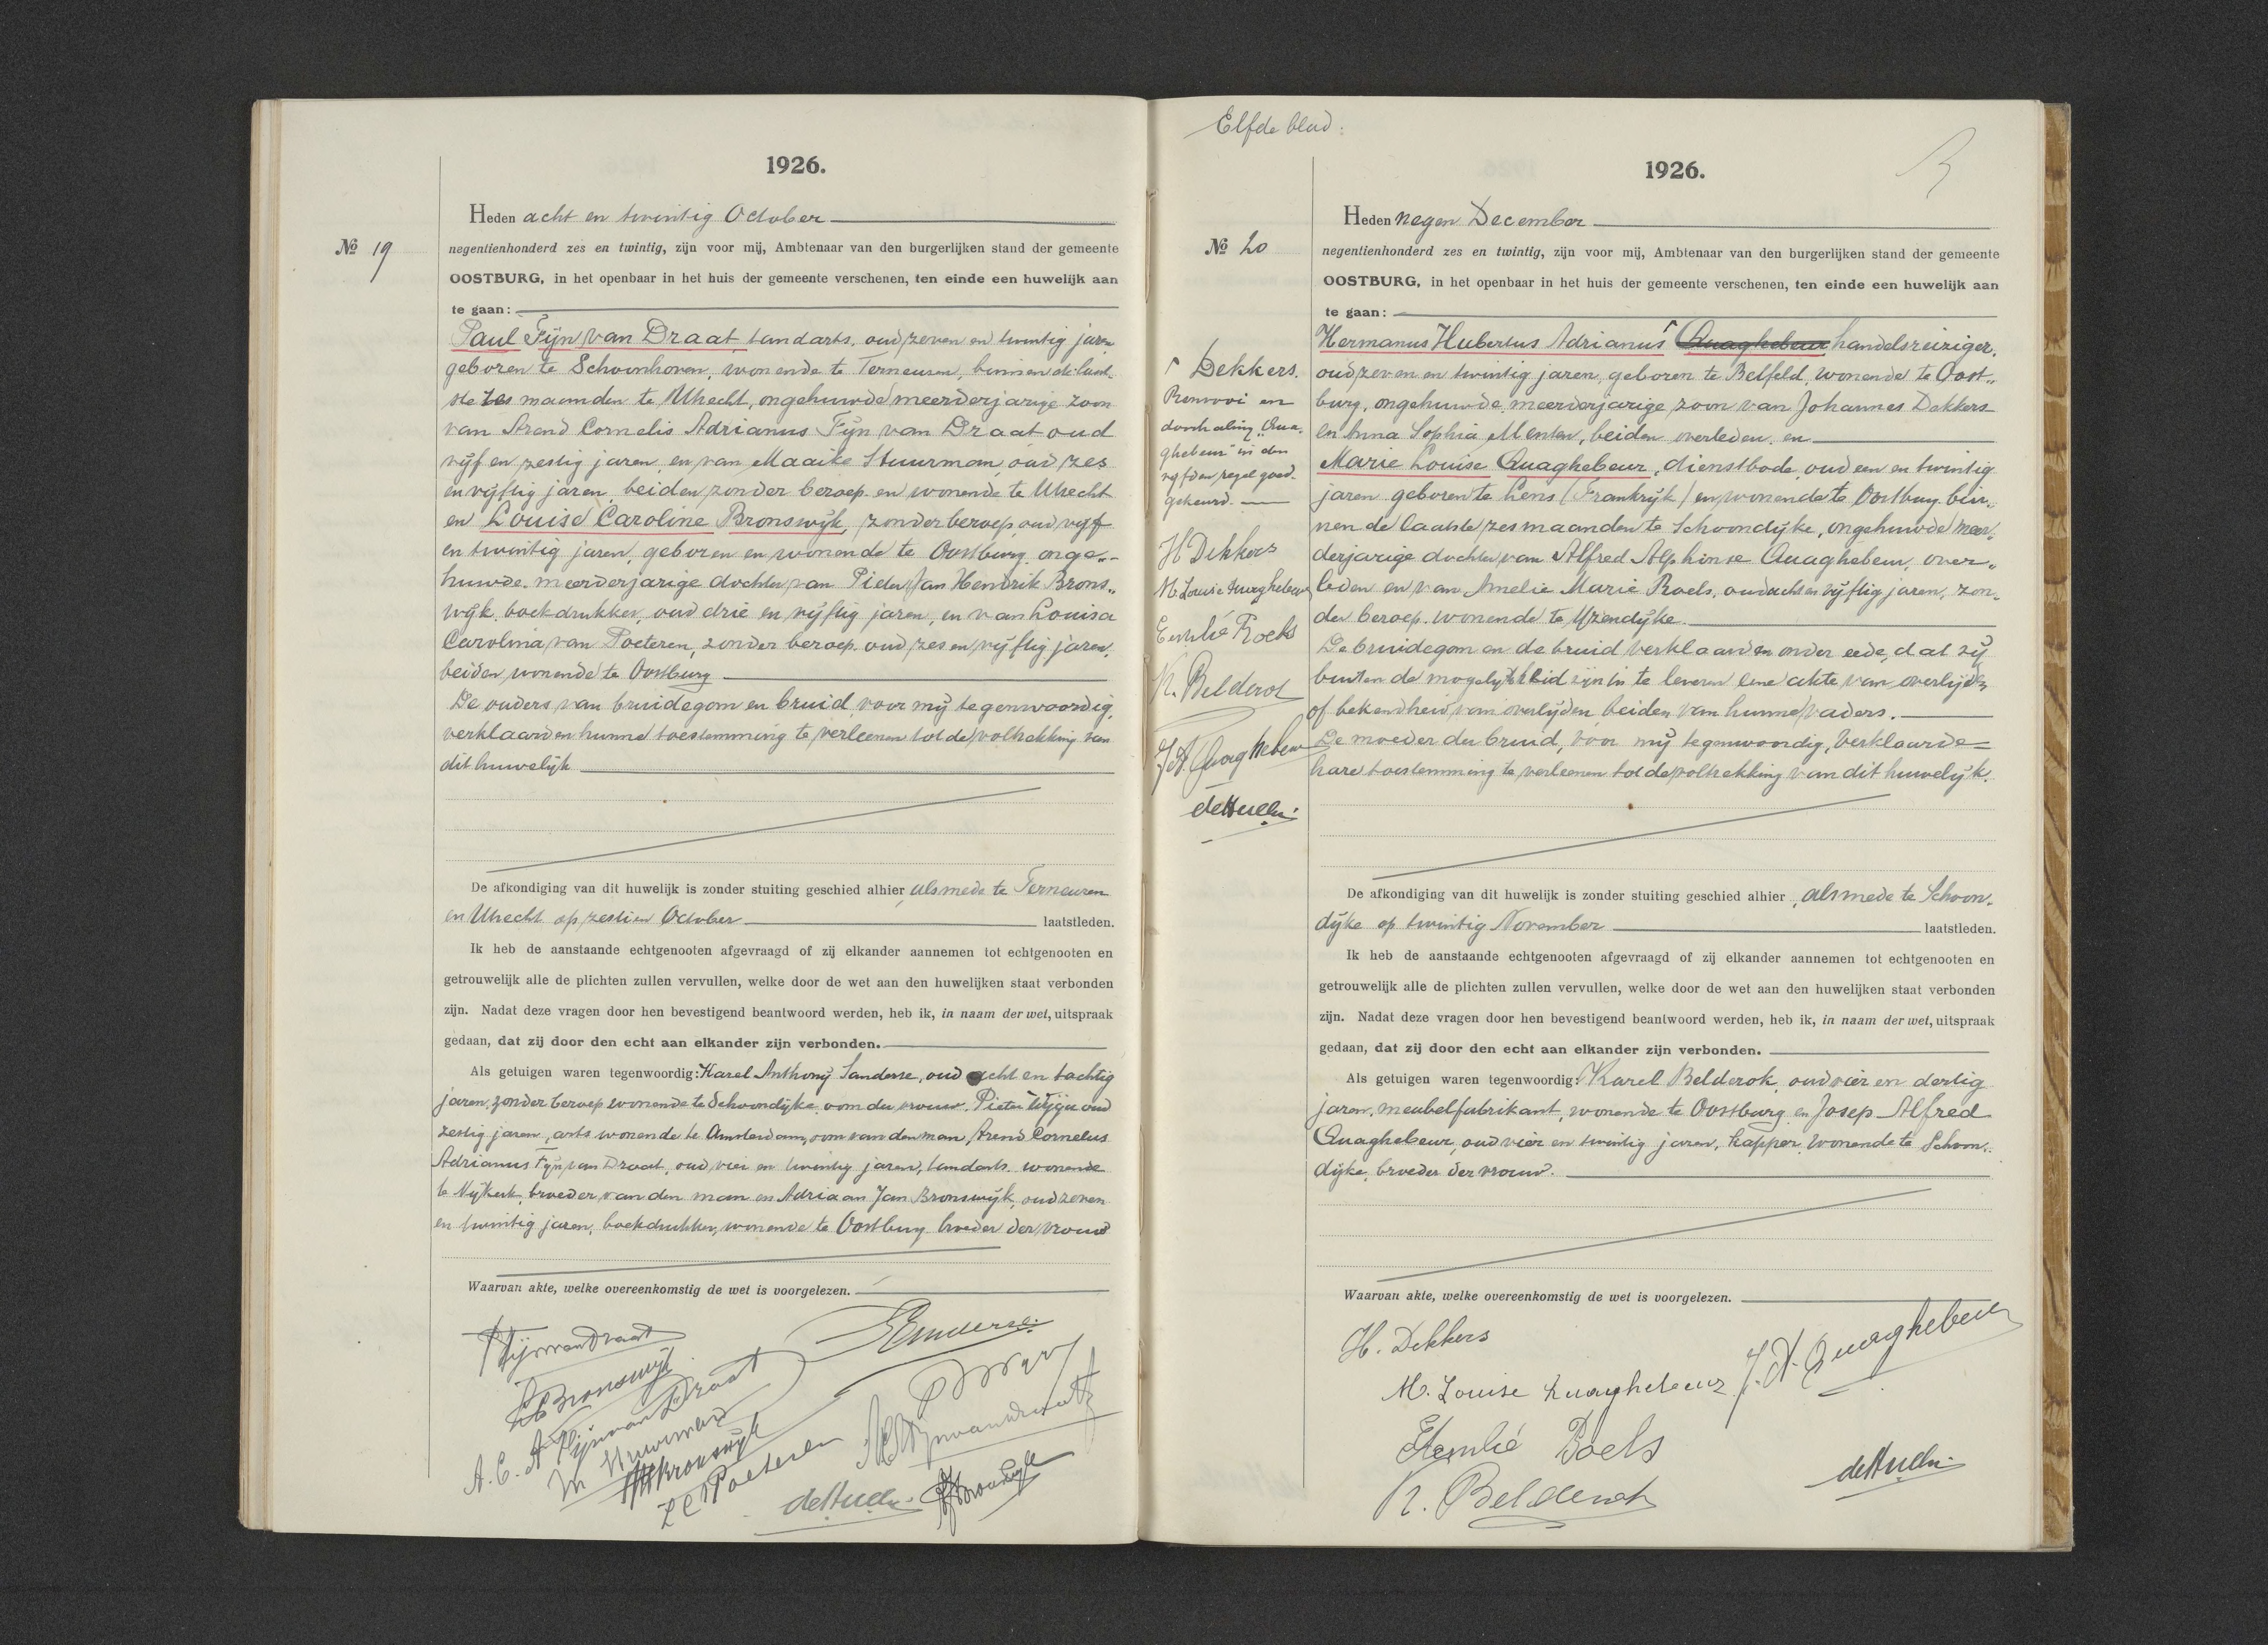 1926.
Heden acht en twintig October
No 19
negentienhonderd zes en twintig, zijn voor mij, Ambtenaar van den burgerlijken stand der gemeente
OOSTBURG, in het openbaar in het huis der gemeente verschenen, ten einde een huwelijk aan
te gaan:
Paul Fijn van Draat, tandarts, oud zeven en twintig jaren
geboren te Schoonhoven, wonende te Terneuzen, binnen de laat-
ste zes maanden te Utrecht, ongehuwde meerderjarige zoon
van Arend Cornelis Adrianus Fijn van Draat oud
vijf en zestig jaren, en van Maaike Stuurman, oud zes
en vijftig jaren, beiden zonder beroep en wonende te Utrecht
en Louise Caroline Bronswijk, zonder beroep, oud vijf
en twintig jaren, geboren en wonende te Oostburg, onge-
huwde meerderjarige dochter van Pieter Jan Hendrik Brons-
wijk, boekdrukker, oud drie en vijftig jaren, en van Louisa
Carolina van Poeteren, zonder beroep, oud zes en vijftig jaren,
beiden wonende te Oostburg
De ouders van bruidegom en bruid, voor mij tegenwoordig,
verklaarden hunne toestemming te verleenen tot de voltrekking van
dit huwelijk
De afkondiging van dit huwelijk is zonder stuiting geschied alhier, alsmede te Terneuzen
en Utrecht op zestien October laatstleden.
Ik heb de aanstaande echtgenooten afgevraagd of zij elkander aannemen tot echtgenooten en
getrouwelijk alle de plichten zullen vervullen, welke door de wet aan den huwelijken staat verbonden
zijn. Nadat deze vragen door hen bevestigend beantwoord werden, heb ik, in naam der wet, uitspraak
gedaan, dat zij door den echt aan elkander zijn verbonden.
Als getuigen waren tegenwoordig: Karel Anthony Sanderse, oud acht en tachtig
jaren, zonder beroep wonende te Schoondijke, oom der vrouw, Pieter oud
zestig jaren, arts wonende te Amsterdam, oom van den man, Arend Cornelus
Adrianus Fijn van Draat, oud vier en twintig jaren, tandarts, wonende
te Nijkerk, broeder van den man en Adriaan Jan Bronswijk, oud zeven
en twintig jaren, boekdrukker, wonende te Oostburg broeder der vrouw
Waarvan akte, welke overeenkomstig de wet is voorgelezen.
P Fijn van Draat
LC Bronswijk
A. C. A Fijn van Draat
M Stuurman
Bronswijk
L C v Poeteren
Sanderse
de Hullu
Bronswijk
Elfde blad:
1926.
Heden negen December
No 20
negentienhonderd zes en twintig, zijn voor mij, Ambtenaar van den burgerlijken stand der gemeente
OOSTBURG, in het openbaar in het huis der gemeente verschenen, ten einde een huwelijk aan
te gaan:
Hermanus Hubertus Adrianus Quaghebeur handelsreiziger,
oud zeven en twintig jaren, geboren te Belfeld, wonende te Oost-
burg, ongehuwde meerderjarige zoon van Johannes Dekkers
en Anna Sophia Menten, beiden overleden, en
Marie Louise Quaghebeur, dienstbode, oud een en twintig
jaren geboren te Lens (Frankrijk) en wonende te Oostburg bin-
nen de laatste zes maanden te Schoondijke, ongehuwde meer-
derjarige dochter van Alfred Alphonse Quaghebeur, over-
leden en van Amelie Marie Roels, oud acht en vijftig jaren, zon-
der beroep, wonende te IJzendijke.
De bruidegom en de bruid verklaarden onder eede, dat zij
buiten de mogelijkheid zijn in te leveren eene akte van overlijden
of bekendheid van overlijden beiden van hunne vaders.
De moeder der bruid, voor mij tegenwoordig, verklaarde
hare toestemming te verleenen tot de voltrekking van dit huwelijk.
Dekkers.
Renvooi en
doorhaling "Qua-
ghebeur" in den
vijfden regel goed-
gekeurd.
H Dekkers
M. Louise Quaghebeur
Emilié Roels
K. Belderok
J. A. Quaghebeur
de Hullu
De afkondiging van dit huwelijk is zonder stuiting geschied alhier, alsmede te Schoon-
dijke op twintig November laatstleden.
Ik heb de aanstaande echtgenooten afgevraagd of zij elkander aannemen tot echtgenooten en
getrouwelijk alle de plichten zullen vervullen, welke door de wet aan den huwelijken staat verbonden
zijn. Nadat deze vragen door hen bevestigend beantwoord werden, heb ik, in naam der wet, uitspraak
gedaan, dat zij door den echt aan elkander zijn verbonden.
Als getuigen waren tegenwoordig: Karel Belderok, oud vier en dertig
jaren, meubelfabrikant, wonende te Oostburg en Josep Alfred
Quaghebeur, oud vier en twintig jaren, kapper, wonende te Schoon-
dijke, broeder der vrouw.
Waarvan akte, welke overeenkomstig de wet is voorgelezen.
H. Dekkers
M. Louise Quaghebeur
J. A. Quaghebeur
Emilié Roels
K. Belderok
de Hullu